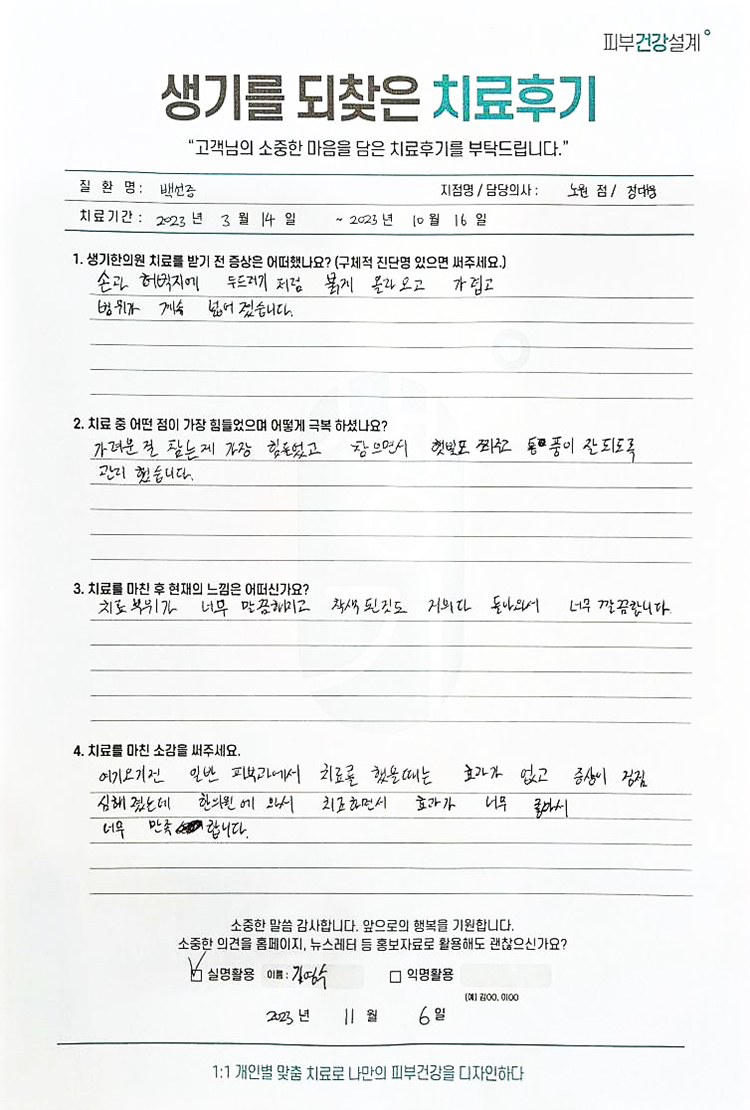 피부건강설계
생기를 되찾은 치료후기
“고객님의 소중한 마음을 담은 치료후기를 부탁드립니다.”
질 환 명 : 백선증 지점명 / 담당의사 : 노원 점 / 정대웅
치료기간 : 2023 년 3 월 14 일 ~ 2023 년 10 월 16 일
1. 생기한의원 치료를 받기 전 증상은 어떠했나요? (구체적 진단명 있으면 써주세요.)
손과 허벅지에 두드러기 처럼 붉게 올라오고 가렵고
범위가 계속 넓어 졌습니다.
2. 치료 중 어떤 점이 가장 힘들었으며 어떻게 극복 하셨나요?
가려운 걸 참는게 가장 힘들었고 참으면서 햇빛도 쬐주고 통풍이 잘 되도록
관리 했습니다.
3. 치료를 마친 후 현재의 느낌은 어떠신가요?
치료 부위가 너무 말끔해지고 착색 된것도 거의다 돌아와서 너무 깔끔합니다.
4. 치료를 마친 소감을 써주세요.
여기오기전 일반 피부과에서 치료를 했을때는 효과가 없고 증상이 점점
심해 졌는데 한의원에 와서 치료하면서 효과가 너무 좋아서
너무 만족 합니다.
소중한 말씀 감사합니다. 앞으로의 행복을 기원합니다.
소중한 의견을 홈페이지, 뉴스레터 등 홍보자료로 활용해도 괜찮으신가요?
실명활용 이름 : 길영수 익명활용
(예) 김OO, 이OO
2023 년 11 월 6 일
1:1 개인별 맞춤 치료로 나만의 피부건강을 디자인하다